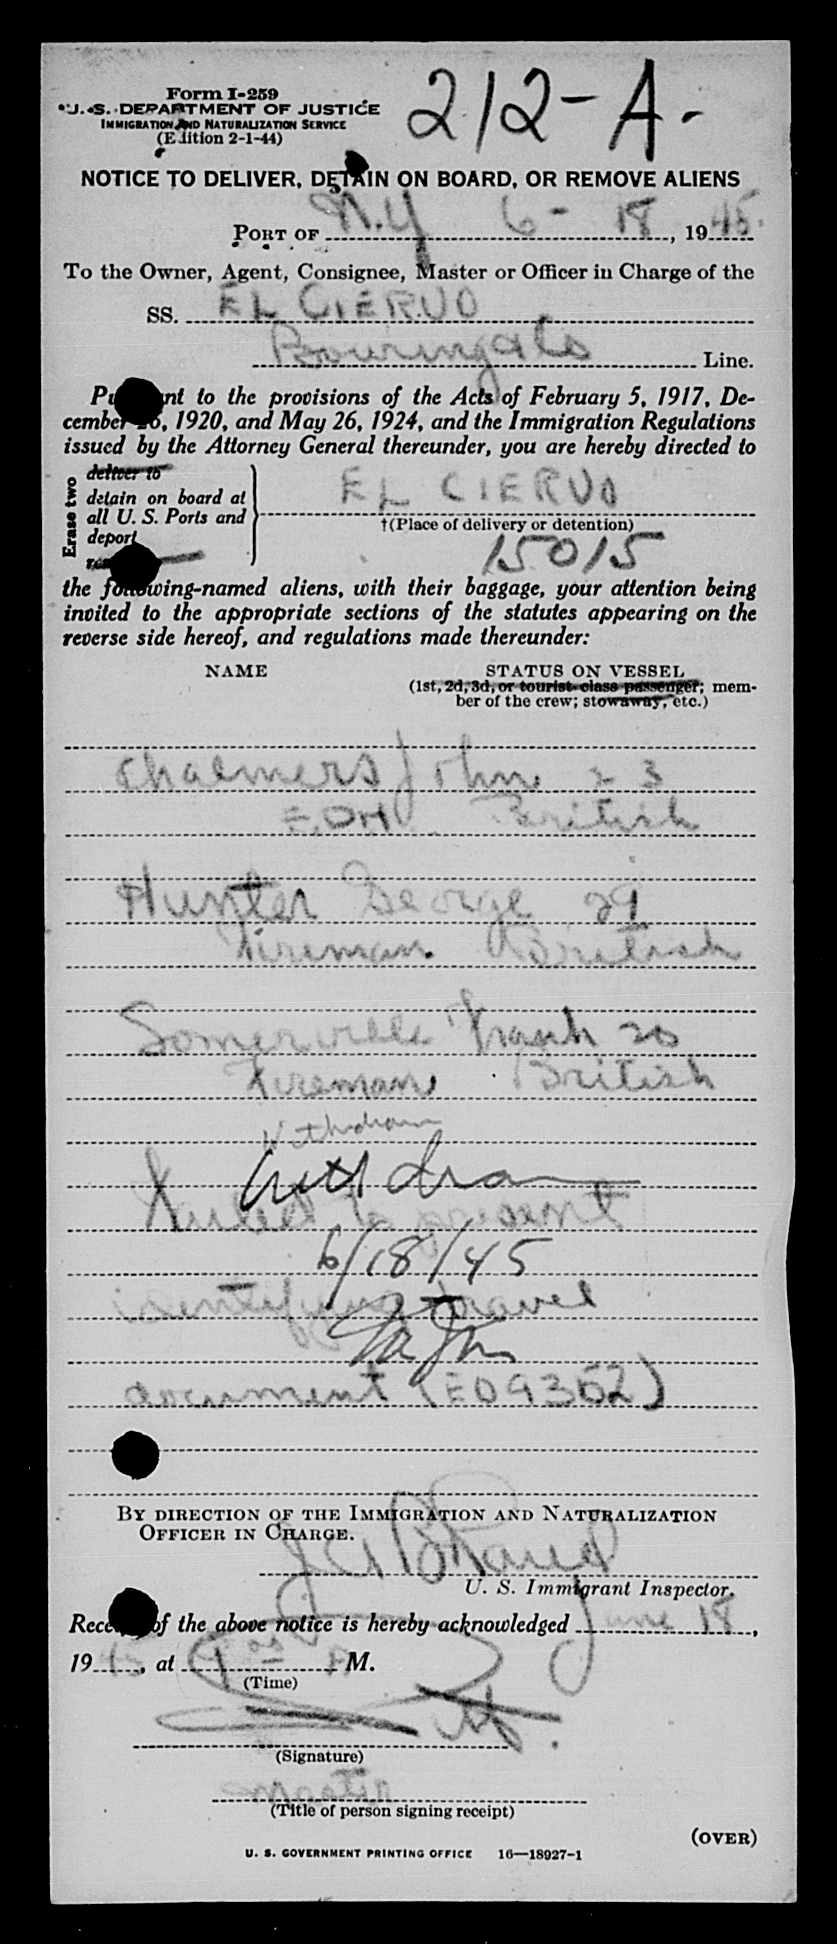 Form I-259
U. S. DEPARTMENT OF JUSTICE
IMMIGRATION AND NATURALIZATION SERVICE
(Edition 2-1-44)
212-A-
NOTICE TO DELIVER, DETAIN ON BOARD, OR REMOVE ALIENS
PORT OF N.Y 6-18, 1945.
To the Owner, Agent, Consignee, Master or Officer in Charge of the
SS. EL CIERVO
Line.
Pursuant to the provisions of the Acts of February 5, 1917, De-
cember 26, 1920, and May 26, 1924, and the Immigration Regulations
issued by the Attorney General thereunder, you are hereby directed to
Erase two
deliver to
detain on board at
all U. S. Ports and
deport
EL CIERVO
†(Place of delivery or detention)
15015
the following-named aliens, with their baggage, your attention being
invited to the appropriate sections of the statutes appearing on the
reverse side hereof, and regulations made thereunder:
NAME STATUS ON VESSEL
(1st, 2d, 3d, or tourist-class passenger; mem-
ber of the crew; stowaway, etc.)
Chalmers John 23
E.DH British
Hunter George 29
Fireman British
Somerville Frank 20
Fireman British
Withdrawn
Withdrawn
Failed to present
6/18/45
identifying travel
document (E09352)
BY DIRECTION OF THE IMMIGRATION AND NATURALIZATION
OFFICER IN CHARGE.
U. S. Immigrant Inspector.
Receipt of the above notice is hereby acknowledged June 18,
1945, at M.
(Time)
(Signature)
Master
(Title of person signing receipt)
(OVER)
U. S. GOVERNMENT PRINTING OFFICE 16—18927-1